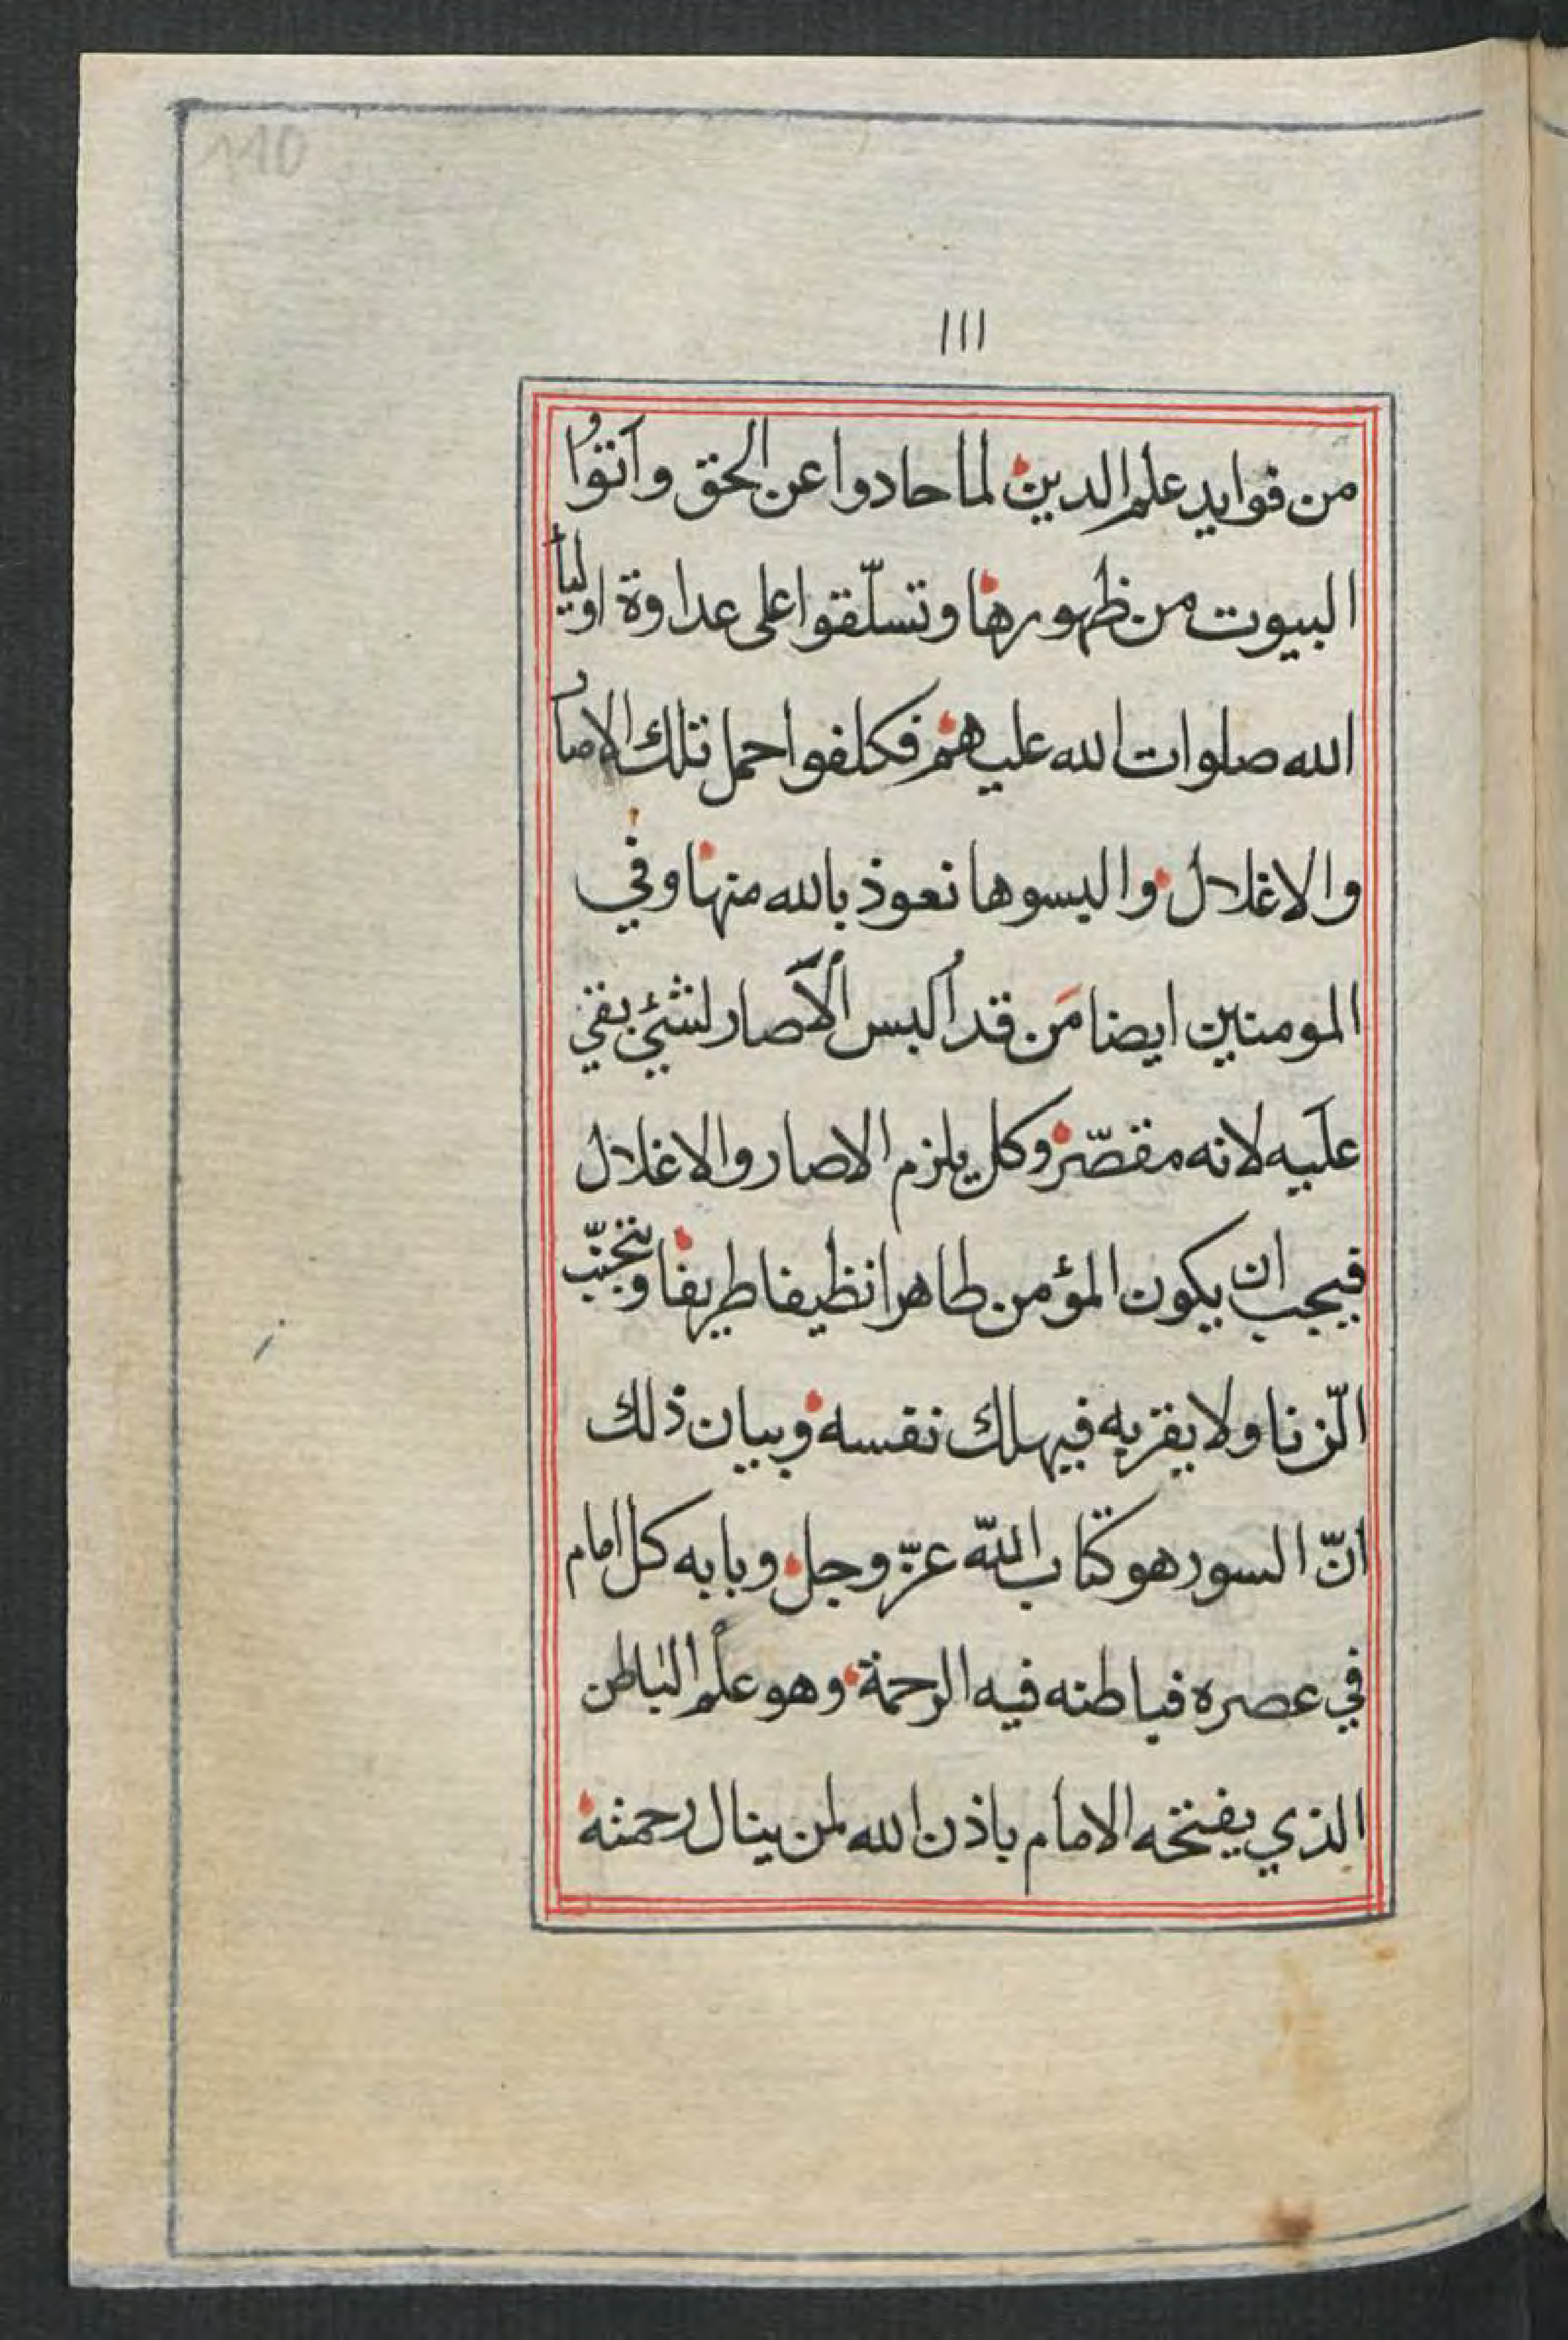 110
١١١
من فوايد علم الدين لما حادوا عن الحق وآتوُا
البيوت من ظهورها وتسلّقوا على عداوة اوليآ
الله صلوات الله عليهم فكلفوا حمل تلك الاصار
والاغلال والبسوها نعوذ بالله منها وفي
المومنين ايضا مَن قد اُلبس الآصار لشئ بقي
عليه لانه مقصّر وكل يلزم الاصار والاغلال
فيجب ان يكون المؤمن طاهرا نظيفا ظريفا ويتجنّب
الّزنا ولا يقربه فيهلك نفسه وبيان ذلك
انّ السور هو كتاب اللّه عزّ وجل وبابه كل امام
في عصره فباطنه فيه الرحمة وهو علم الباطن
الذي يفتحه الامام باذن الله لمن ينال رحمته